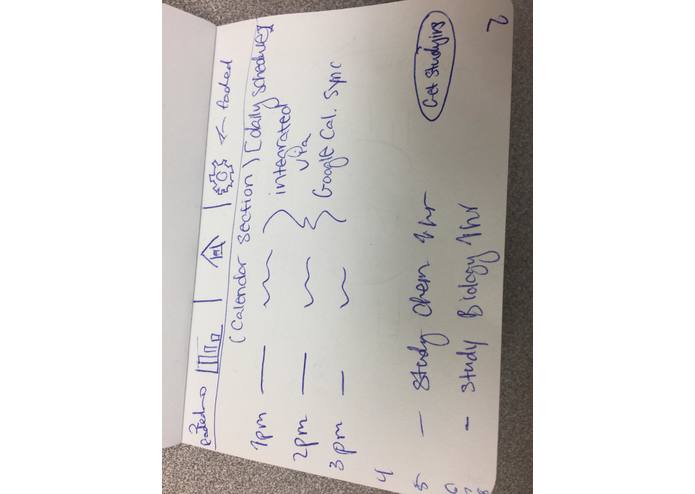 faded
← faded
(Calendar section) [daily schedule]
1pm — integrated
2pm — via
3pm — Google Cal. Sync
4
5 — Study Chem 1hr
6 - Study Biology 1hr
7
8
Get studying
2